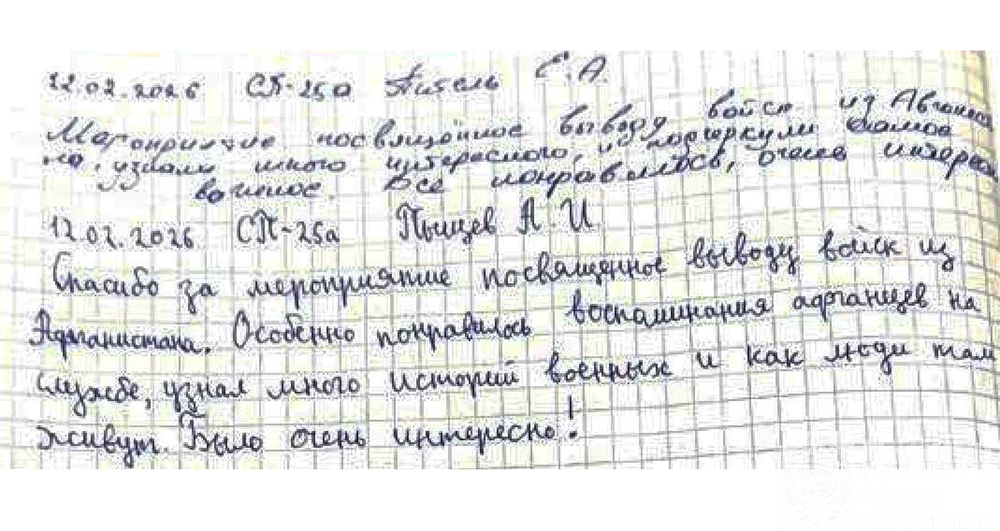 12.02.2026 СП-25а Апсель Е.А.
Мероприятие посвящённое выводу войск из Афганиста
на, узнали много интересного, и подчеркнули самое
важное. Всё понравилось, очень интересно
12.02.2026 СП-25а Пышцев А.И.
Спасибо за мероприятие посвященное выводу войск из
Афганистана. Особенно понравилось воспоминания афганцев на
службе, узнал много историй военных и как люди там
живут. Было очень интересно!